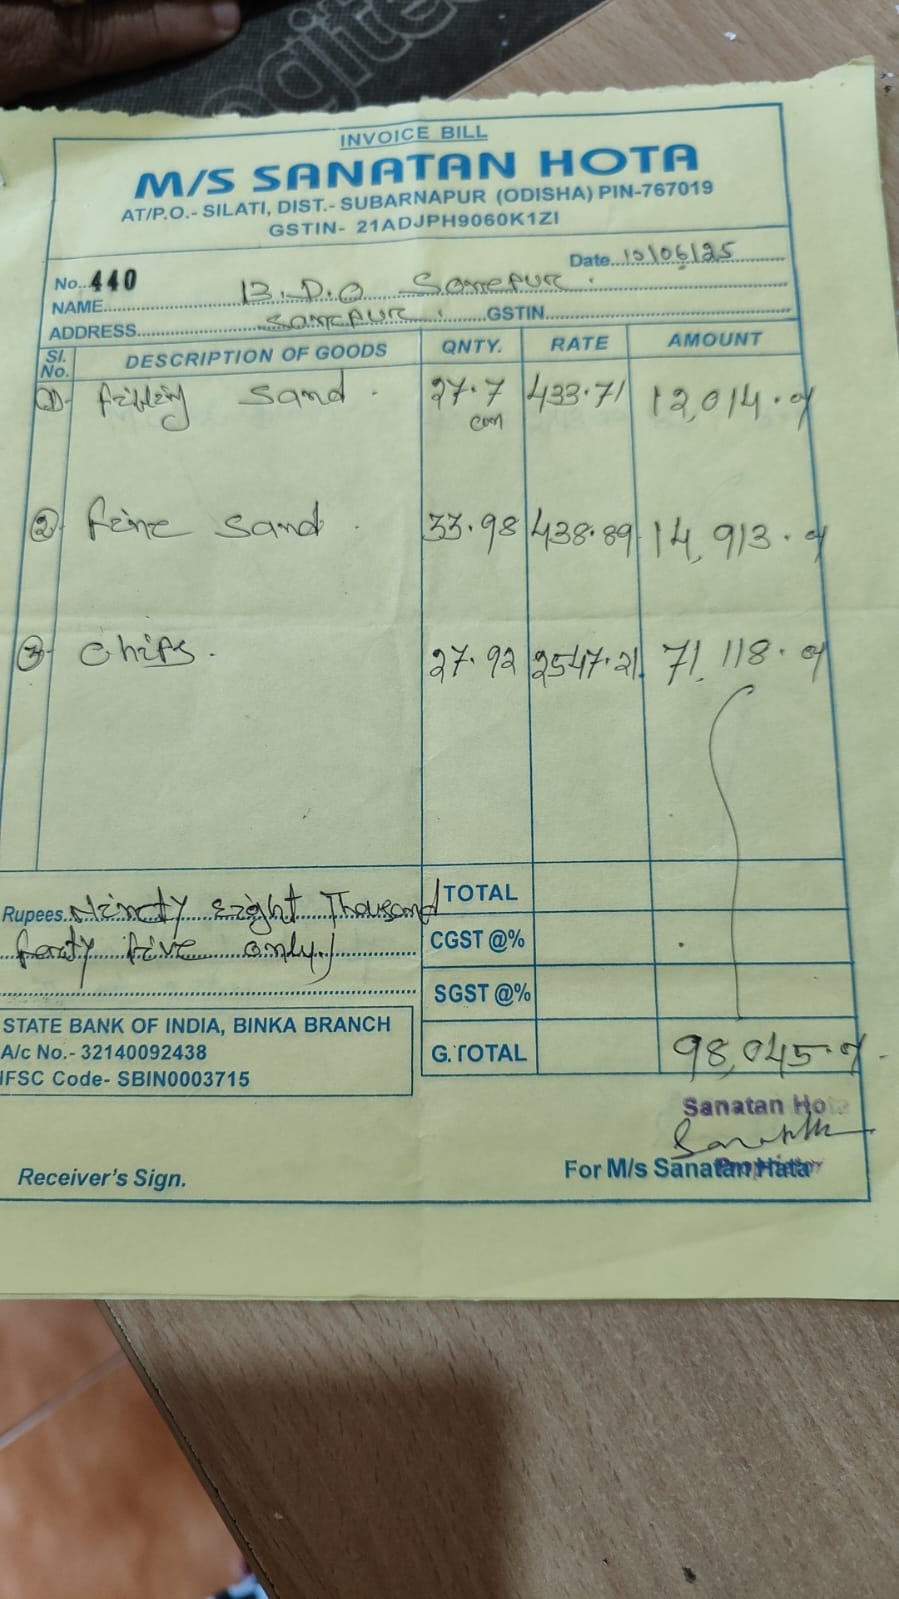 ogite
INVOICE BILL
M/S SANATAN HOTA
AT/P.O.- SILATI, DIST.- SUBARNAPUR (ODISHA) PIN-767019
GSTIN- 21ADJPH9060K1ZI
No. 440 Date. 10/06/25
NAME B.D.O Sonepur.
ADDRESS Sonepur. GSTIN
Sl. No. DESCRIPTION OF GOODS QNTY. RATE AMOUNT
(1) filling sand. 27.7 cum 433.71 12,014.0/
(2) fine sand. 33.98 438.89 14,913.0/
(3) chips. 27.92 2547.21 71,118.0/
TOTAL
Rupees Ninety Eight Thousand
forty five only/
CGST @%
SGST @%
STATE BANK OF INDIA, BINKA BRANCH
A/c No.- 32140092438
IFSC Code- SBIN0003715
G.TOTAL 98,045.0/-
Sanatan Hota
Proprietor
Receiver's Sign. For M/s Sanatan Hata